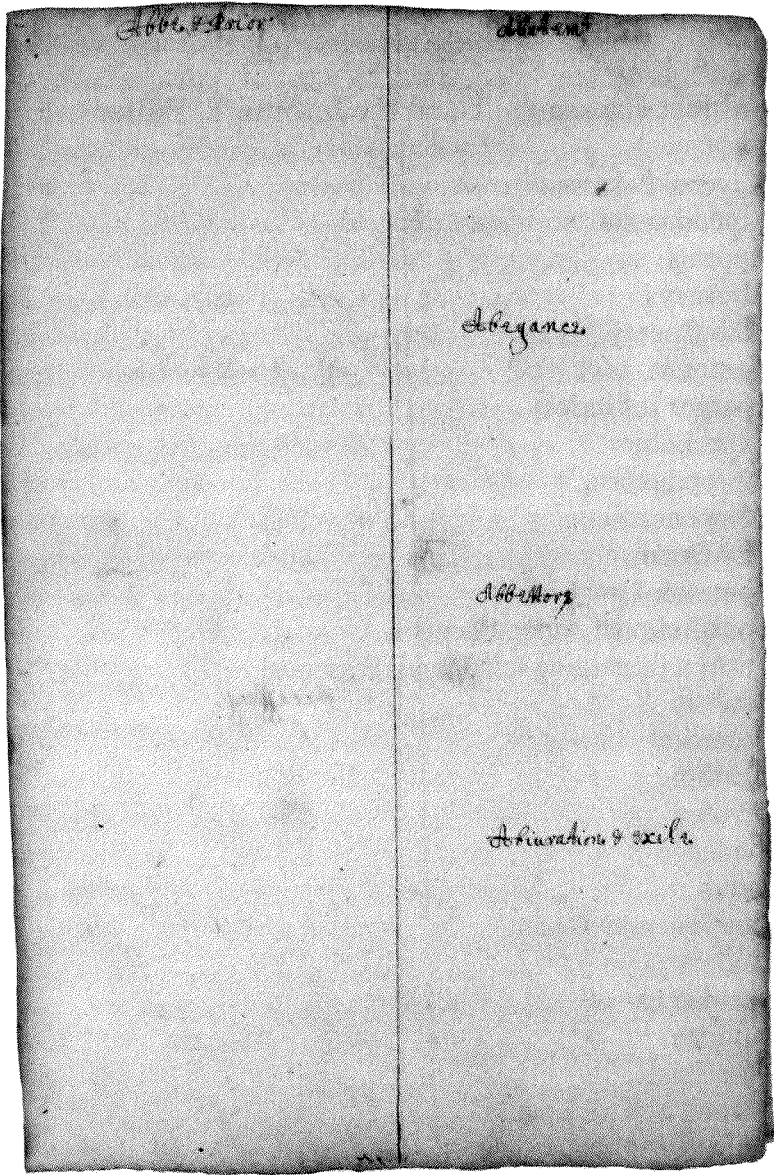 Abbe & Prior
Abatemt
Abeyance
Abbettors
Abiuration & exile